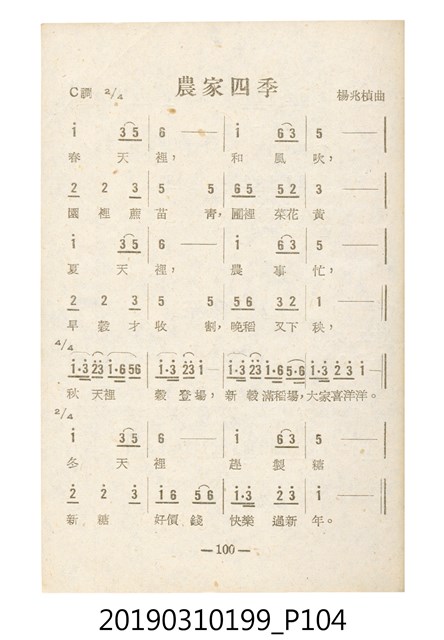 農家四季
C調 2/4 楊兆楨曲
i 35 | 6 — | i 63 | 5 —
春天裡， 和風吹，
2 2 3 | 5 5 | 65 52 | 3 —
園裡蔗苗青，圃裡菜花黃
i 35 | 6 — | i 63 | 5 —
夏天裡， 農事忙，
2 2 3 | 5 5 | 56 32 | 1 —
早穀才收割，晚稻又下秧，
4/4
秋天裡 穀登場，新穀滿稻場，大家喜洋洋。
2/4
i 35 | 6 — | i 63 | 5 —
冬天裡 趕製糖
2 2 3 | i6 56 | i·3 23 | i —
新糖 好價錢 快樂過新年。
—100—
20190310199_P104